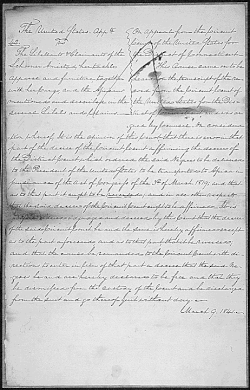 The United States. Appts
vs
The Libelants & Claimants of the
Schooner Amistad, her tackle
apparel and furniture together
with her cargo and the Africans
mentioned and described in the
several libels and claims
On appeal from the Circuit
Court of the United States for
the District of Connecticut.
This Cause came on to be
the transcript of the
from the Circuit Court of
the United States, for the Dis-
by Counsel. On consideration
whereof, It is the opinion of this Court, that there is error in that
part of the decree of the Circuit Court affirming the decree of
the District Court which ordered the said Negroes to be delivered
to the President of the United States to be transported to Africa in
pursuance of the act of Congress of the 3rd of March 1819; and that
as to that part it ought to be reversed: and in all other respects
that the said decree of the Circuit Court ought to be affirmed. It is
therefore ordered adjudged and decreed by this Court that the decree
of the said Circuit Court be and the same is hereby affirmed except
as to the part aforesaid and as to that part that it be reversed;
and that the cause be remanded to the Circuit Court with di-
rections to enter in lieu of that part a decree that the said Ne-
groes be and are hereby declared to be free and that they
be dismissed from the custody of the Court and be discharged
from the suit and go thereof quit without day.
March 9, 1841.